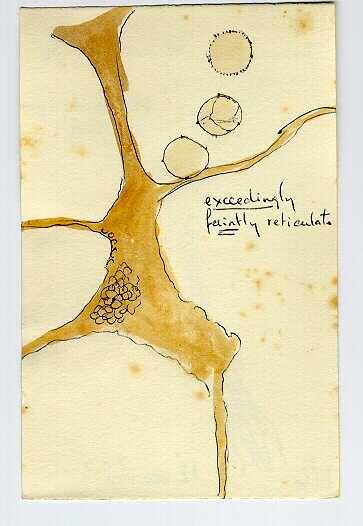 exceedingly
faintly reticulate